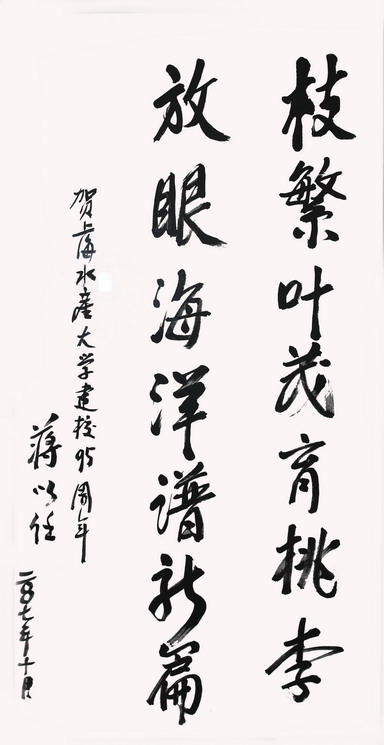 枝繁叶茂育桃李
放眼海洋谱新篇
贺上海水产大学建校95周年
蒋以任
二〇〇七年十月